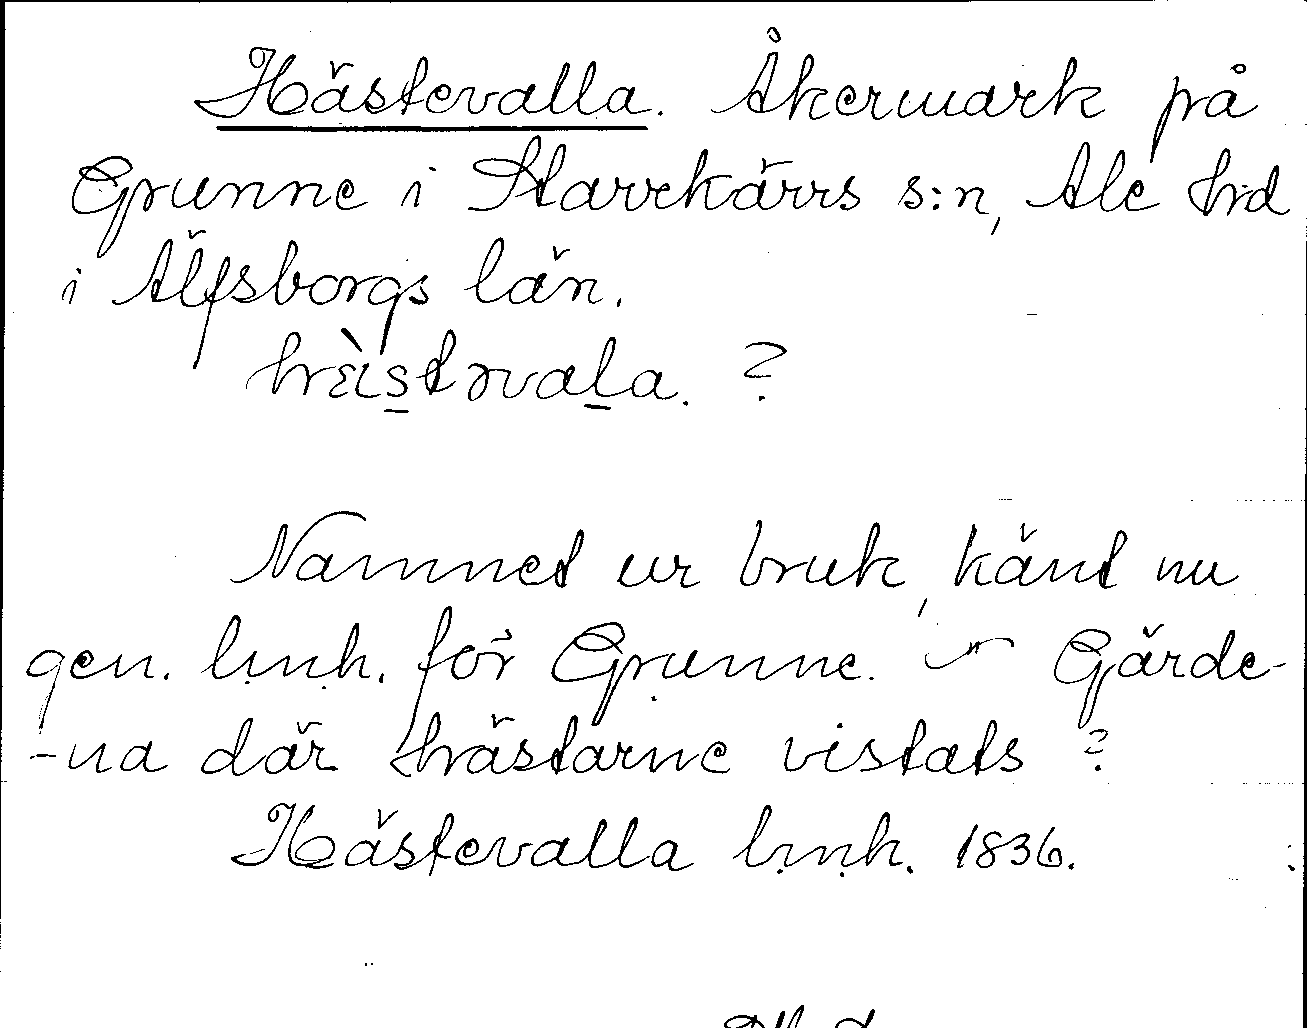 Hästevalla. Åkermark på
Grunne i Starrkärrs s:n, Ale hd
i Älfsborgs län.
hä̀stəvala. ?
Namnet ur bruk, känt nu
gen. lmh. för Grunne. Gärde-
-na där hästarne vistats ?
Hästevalla lmh. 1836.